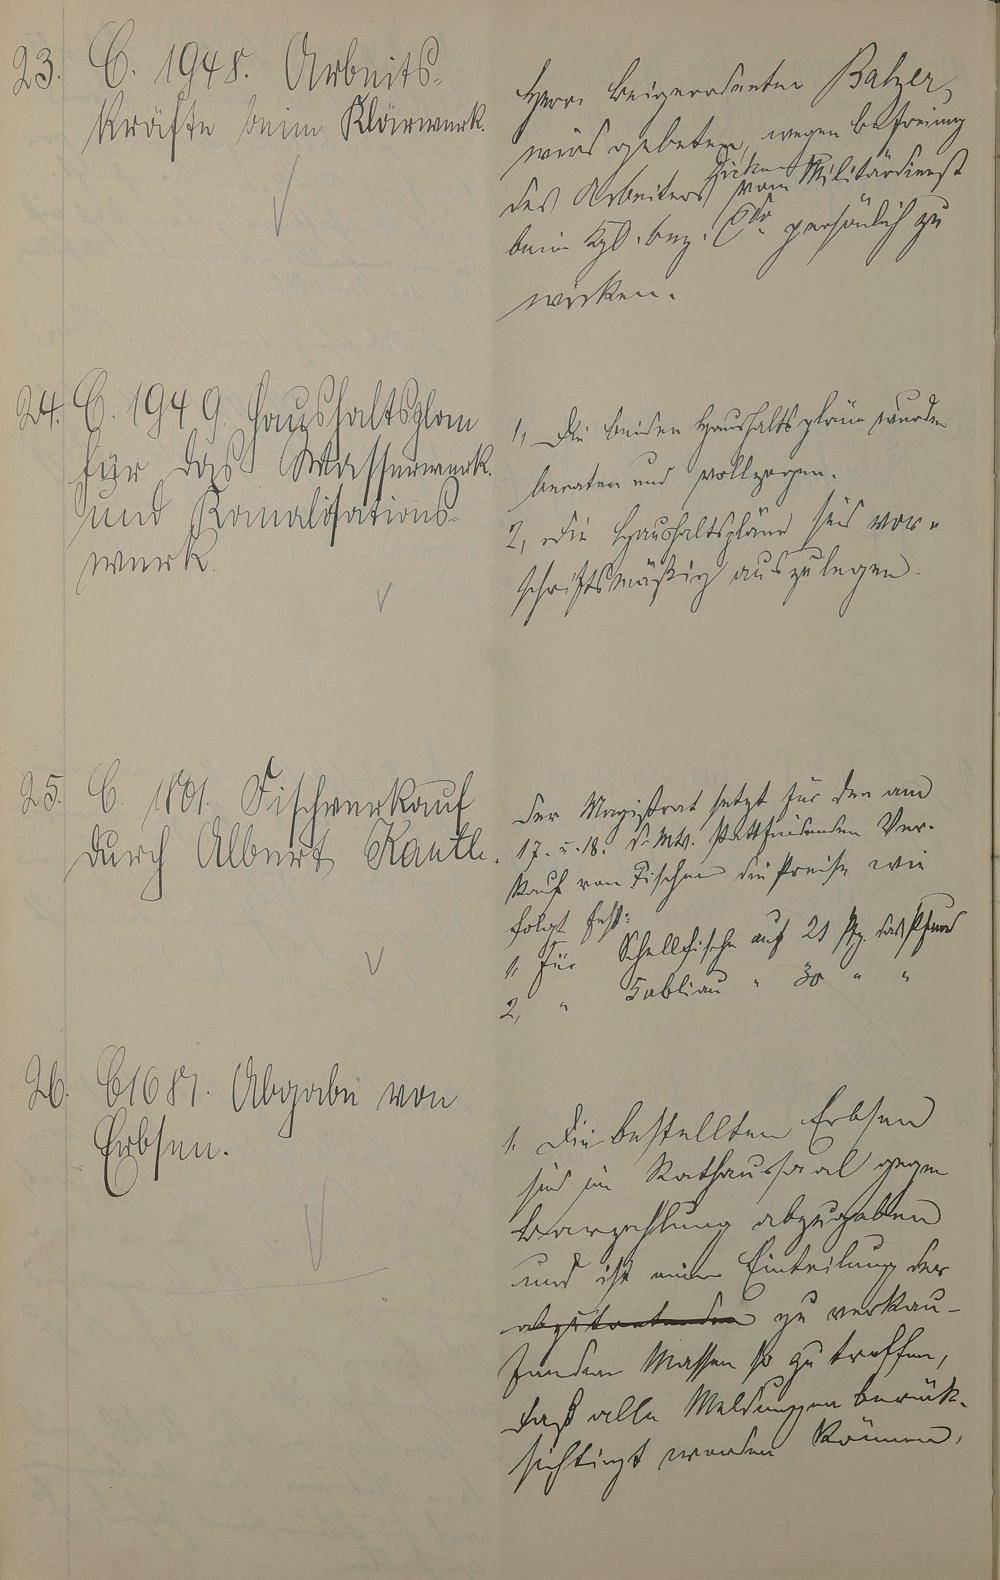 23. C. 1948. Arbeits-
kräfte beim Klärwerk.
Herr Beigeordneter Balzer
wird gebeten, wegen Befreiung
des Arbeiters vom Militärdienst
beim Kgl. Bez. Cdo. persönlich zu
wirken.
24. C. 1949. Haushaltsplan
für das Wasserwerk
und Kanalisations-
werk.
1, Die beiden Haushaltspläne wurden
beraten und vollzogen.
2, Die Haushaltspläne sind vor-
schriftsmäßig auszulegen.
25. C. 1801. Fischverkauf
durch Albert Kauth.
Der Magistrat setzt für den am
17. u. 18. d. Mts. stattfindenden Ver-
kauf von Fischen die Preise wie
folgt fest:
1. Für Schellfische auf 21 Pfg. das Pfund
2, " Kabliau " 30 " "
26. C 1681. Abgabe von
Erbsen.
1. Die bestellten Erbsen
sind im Rathaussaal gegen
Barzahlung abzugeben
und ist eine Einteilung der
zu verkau-
fenden Massen so zu treffen,
daß alle Meldungen berück-
sichtigt werden können.